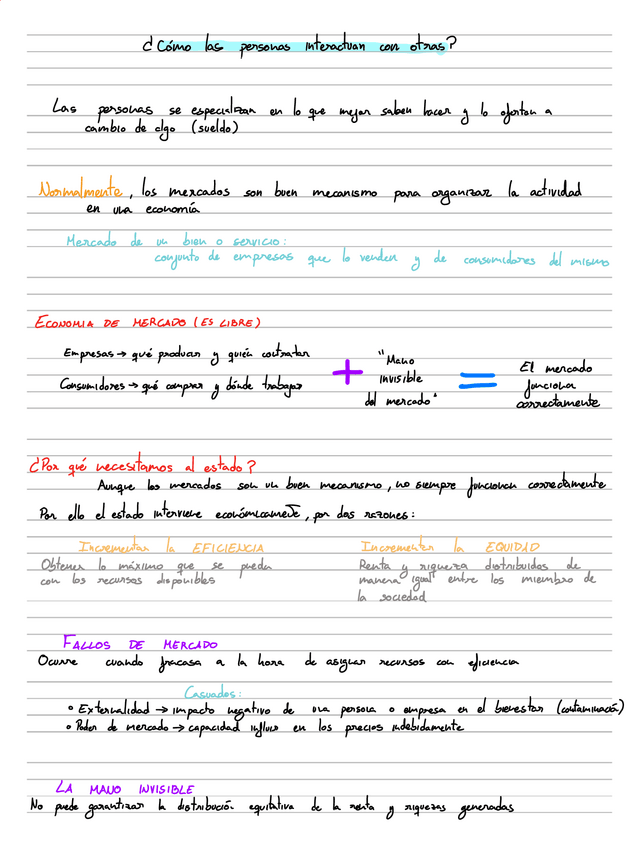 ¿Cómo las personas interactuan con otras?
Las personas se especializan en lo que mejor saben hacer y lo ofertan a
cambio de algo (sueldo)
Normalmente, los mercados son buen mecanismo para organizar la actividad
en una economía
Mercado de un bien o servicio:
conjunto de empresas que lo venden y de consumidores del mismo
ECONOMIA DE MERCADO (ES LIBRE)
Empresas → qué producir y quién contratar
Consumidores → qué comprar y dónde trabajar
+
"Mano
invisible
del mercado"
=
El mercado
funciona
correctamente
¿Por qué necesitamos al estado?
Aunque los mercados son un buen mecanismo, no siempre funcionan correctamente
Por ello el estado interviene económicamente, por dos razones:
Incrementar la EFICIENCIA
Obtener lo máximo que se pueda
con los recursos disponibles
Incrementar la EQUIDAD
Renta y riqueza distribuidos de
manera "igual" entre los miembro de
la sociedad
FALLOS DE MERCADO
Ocurre cuando fracasa a la hora de asignar recursos con eficiencia
Casuados:
• Externalidad → impacto negativo de una persona o empresa en el bienestar (contaminación)
• Poder de mercado → capacidad influir en los precios indebidamente
LA MANO INVISIBLE
No puede garantizar la distribución equitativa de la renta y riquezas generadas